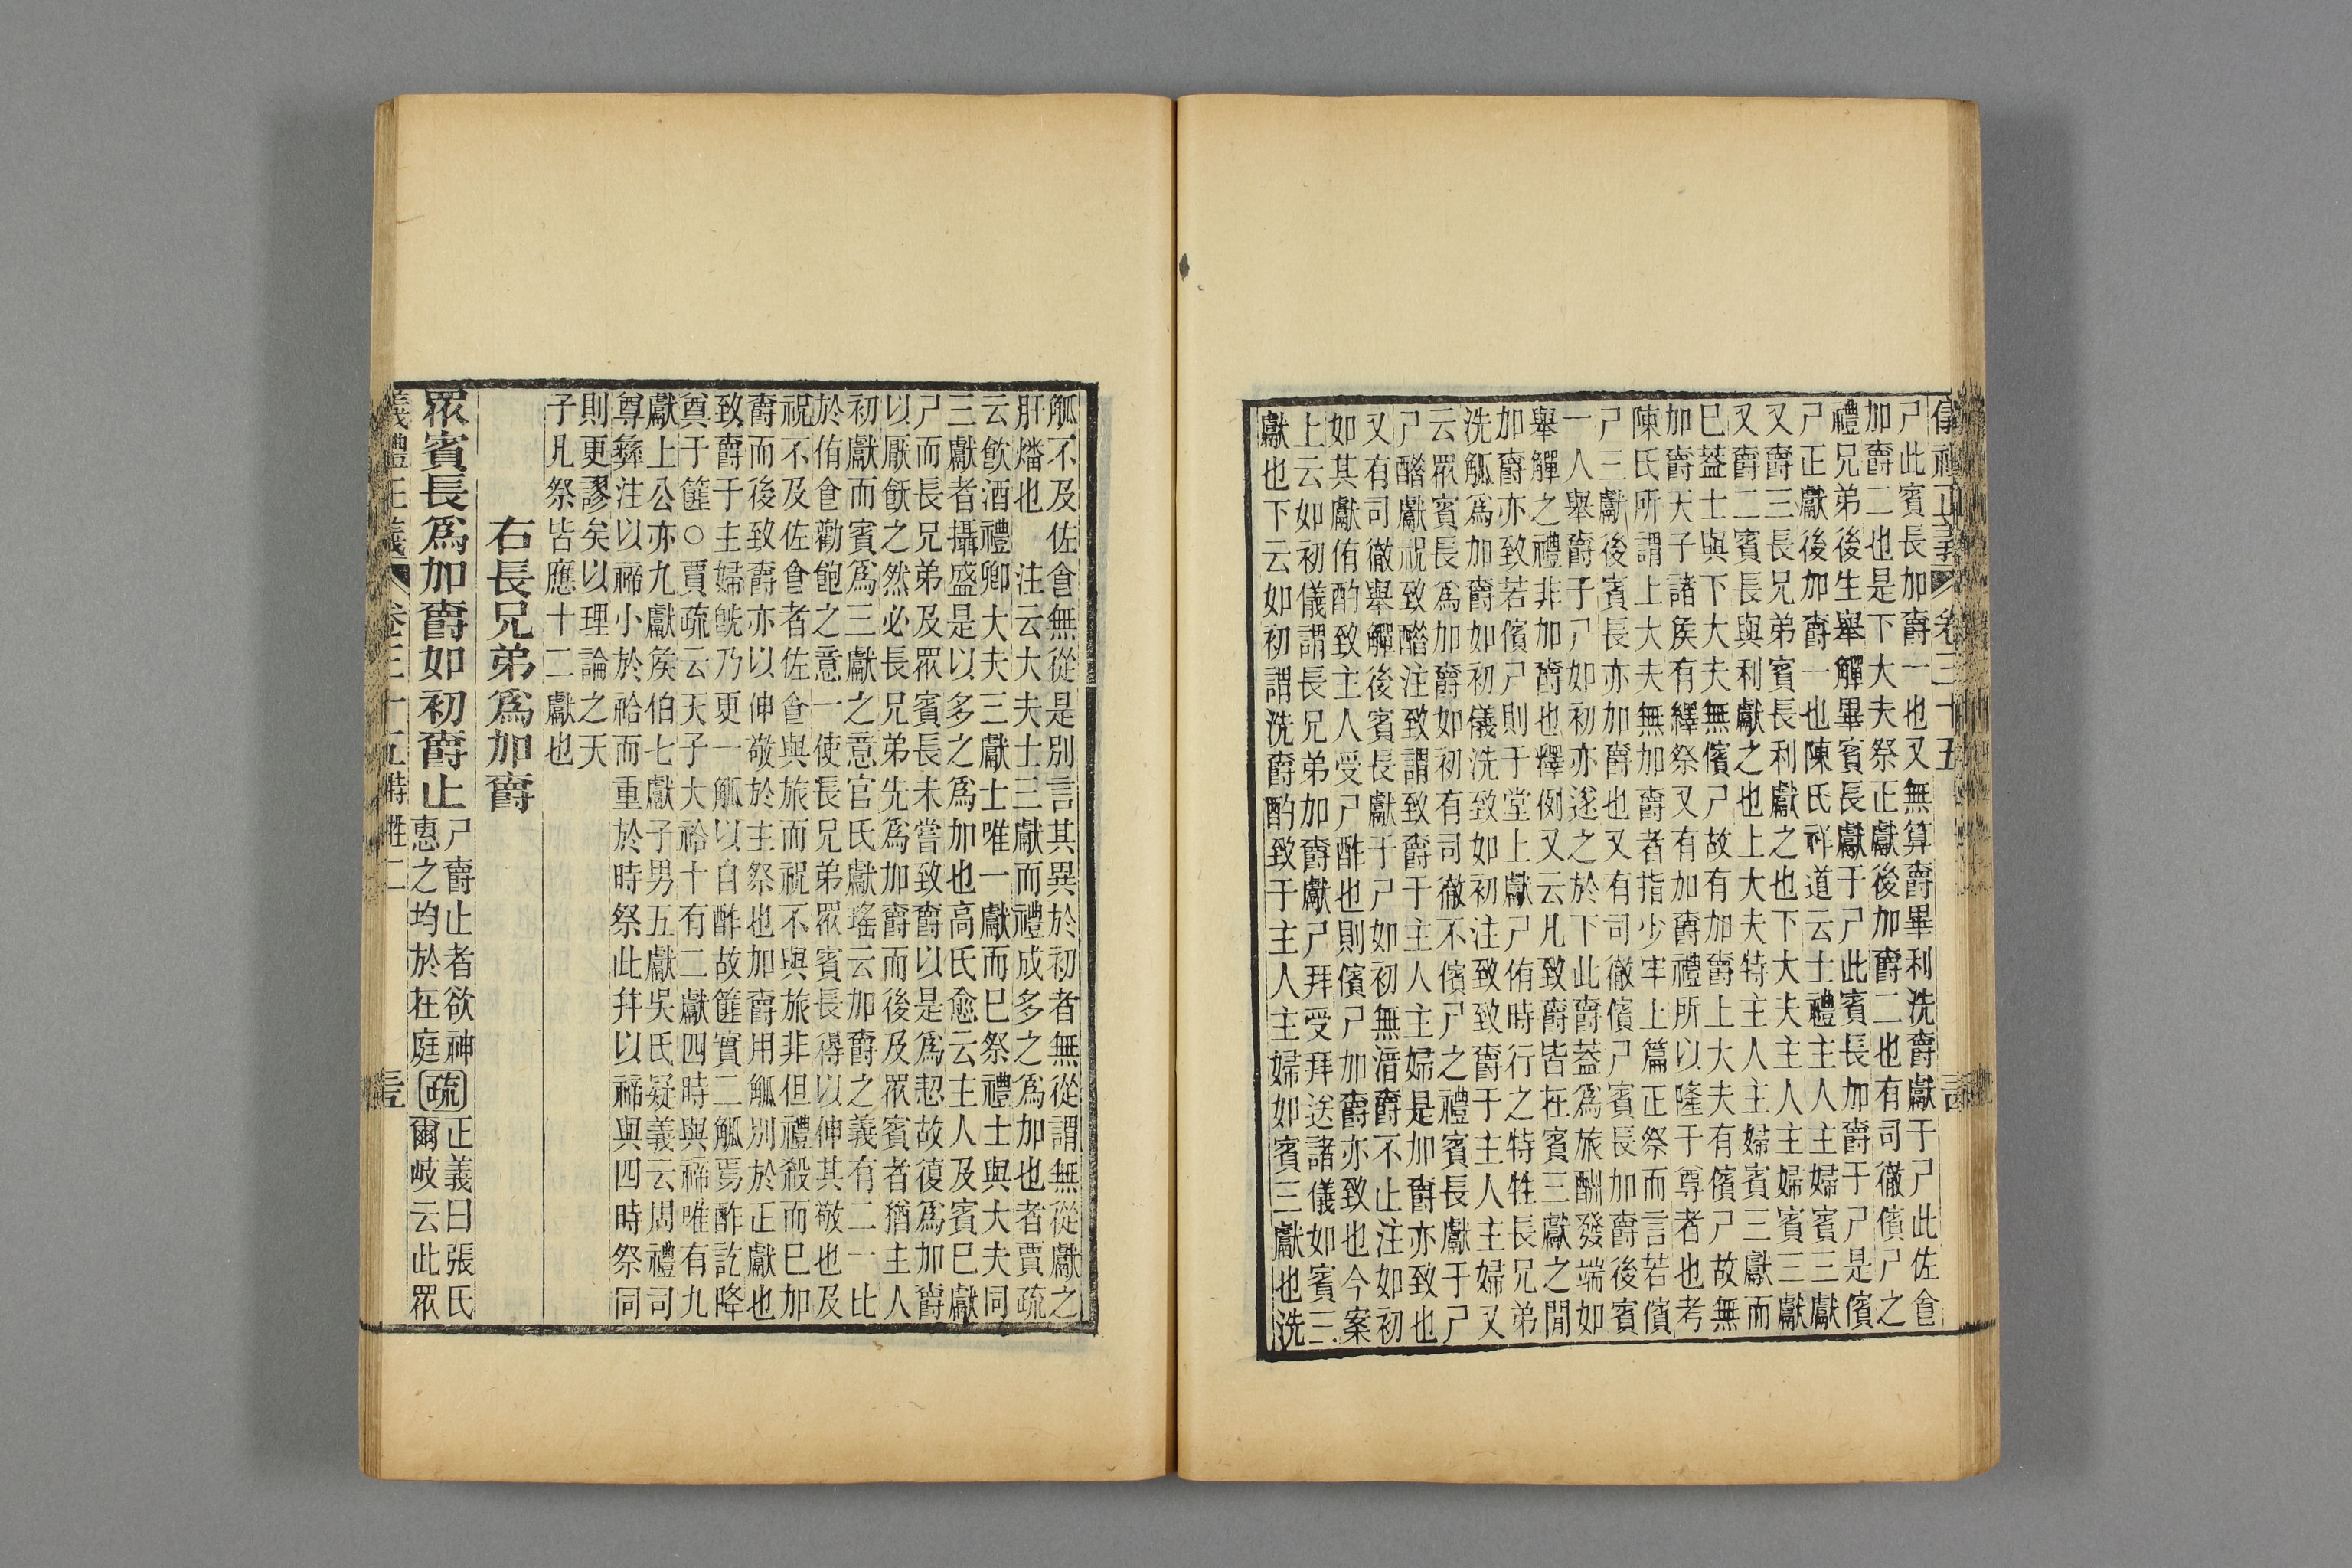 儀禮正義 卷三十五
尸此賓長加爵一也又無算爵畢利洗爵獻于尸此佐食
加爵二也是下大夫祭正獻後加爵二也有司徹儐尸之
禮兄弟後生舉觶畢賓長獻于尸此賓長加爵于尸是儐
尸正獻後加爵一也陳氏祥道云士禮主人主婦賓三獻
又爵三長兄弟賓長利獻之也下大夫主人主婦賓三獻
又爵二賓長與利獻之也上大夫特主人主婦賓三獻而
巳葢士與下大夫無儐尸故有加爵上大夫有儐尸故無
加爵天子諸矦有繹祭又有加爵禮所以隆于尊者也考
陳氏所謂上大夫無加爵者指少牢上篇正祭而言若儐
尸三獻後賓長亦加爵也又有司徹儐尸賓長加爵後賓
一人舉爵于尸如初亦遂之於下此爵葢爲旅酬發端如
舉觶之禮非加爵也釋例又云凡致爵皆在賓三獻之閒
加爵亦致若儐尸則于堂上獻尸侑時行之特牲長兄弟
洗觚爲加爵如初儀洗致如初注致致爵于主人主婦又
云眾賓長爲加爵如初有司徹不儐尸之禮賓長獻于尸
尸醋獻祝致醋注致謂致爵于主人主婦是加爵亦致也
又有司徹舉觶後賓長獻于尸如初無湆爵不止注如初
如其獻侑酌致主人受尸酢也則儐尸加爵亦致也今案
上云如初儀謂長兄弟加爵獻尸拜受拜送諸儀如賓三
獻也下云如初謂洗爵酌致于主人主婦如賓三獻也洗
觚不及佐食無從是別言其異於初者無從謂無從獻之
肝燔也 注云大夫士三獻而禮成多之爲加也者賈疏
云飮酒禮卿大夫三獻士唯一獻而巳祭禮士與大夫同
三獻者攝盛是以多之爲加也高氏愈云主人及賓巳獻
尸而長兄弟及眾賓長未嘗致爵以是爲恝故復爲加爵
以厭飫之然必長兄弟先爲加爵而後及眾賓者猶主人
初獻而賓爲三獻之意官氏獻瑤云加爵之義有二一比
於侑食勸飽之意一使長兄弟眾賓長得以伸其敬也及
祝不及佐食者佐食與旅而祝不與旅非但禮殺而巳加
爵而後致爵亦以伸敬於主祭也加爵用觚別於正獻也
致爵于主婦旣乃更一觚以自酢故篚實二觚焉酢訖降
奠于篚○賈疏云天子大祫十有二獻四時與禘唯有九
獻上公亦九獻矦伯七獻子男五獻吳氏疑義云周禮司
尊彝注以禘小於祫而重於時祭此幷以禘與四時祭同
則更謬矣以理論之天
子凡祭皆應十二獻也
右長兄弟爲加爵
眾賓長爲加爵如初爵止
尸爵止者欲神
惠之均於在庭
疏
正義曰張氏
爾岐云此眾